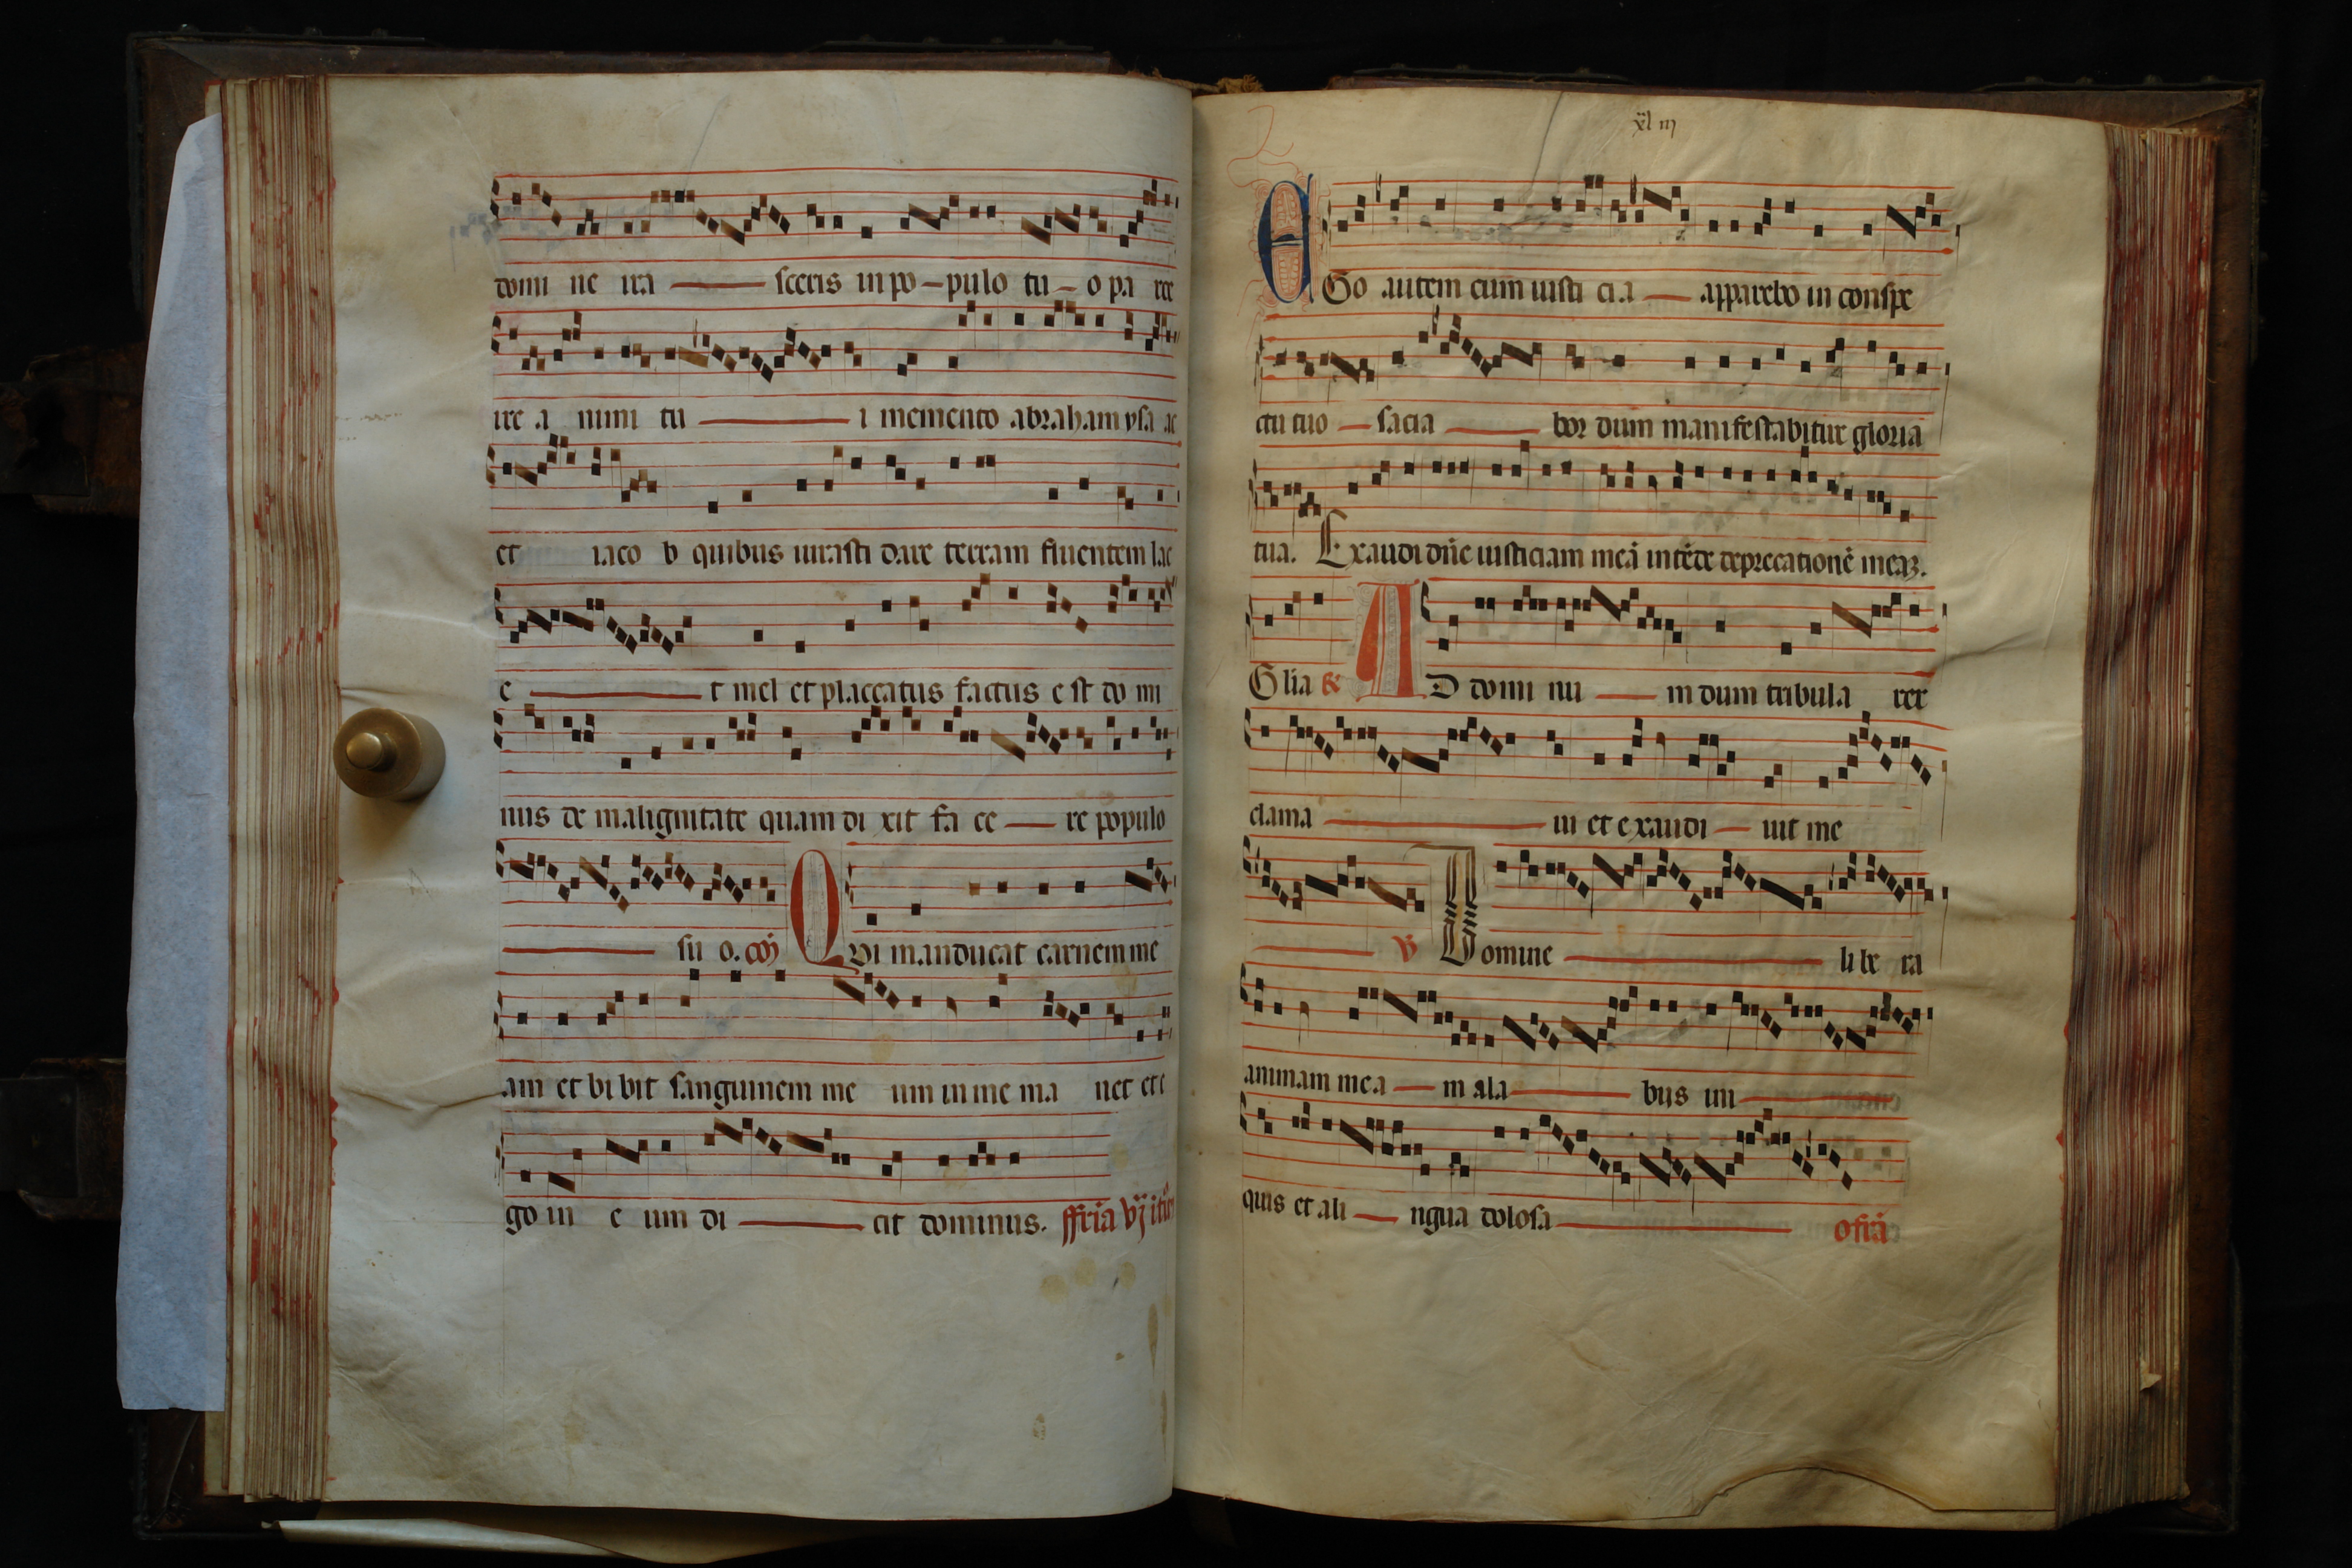 domi ne ira sceris in po pulo tu o pa rce
ire a nimi tu i memento abraham ysa ac
et iaco b quibus iurasti dare terram fluentem lac
e t mel et placatus factus e st do mi
nus de malignitate quam di xit fa ce re populo
su o. coĩ Qvi manducat carnem me
am et bi bit sanguinem me um in me ma net et e
go in e um di cit dominus. ffria vj
xl iij
EGo autem cum iusti cia apparebo in conspe
ctu tuo sacia bor dum manifestabitur gloria
tua. Exaudi dñe iusticiam meã intẽde deprecationẽ meaꝫ.
Glia AD domi nu m dum tribula rer
clama ui et exaudi uit me
℣ Domine libe ra
animam mea m a la bijs ini
quis et a li ngua dolosa ofrã